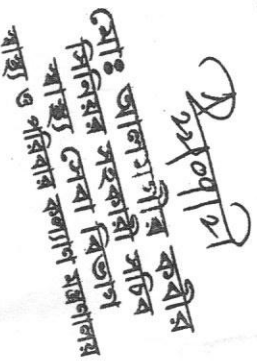 মোঃ আলমগীর কবীর
সিনিয়র সহকারী সচিব
স্বাস্থ্য সেবা বিভাগ
স্বাস্থ্য ও পরিবার কল্যাণ মন্ত্রণালয়